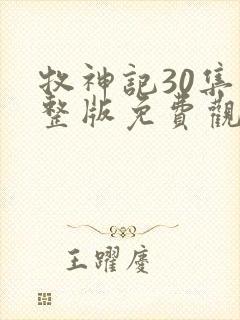 牧神記30集
整版免費觀
王躍慶